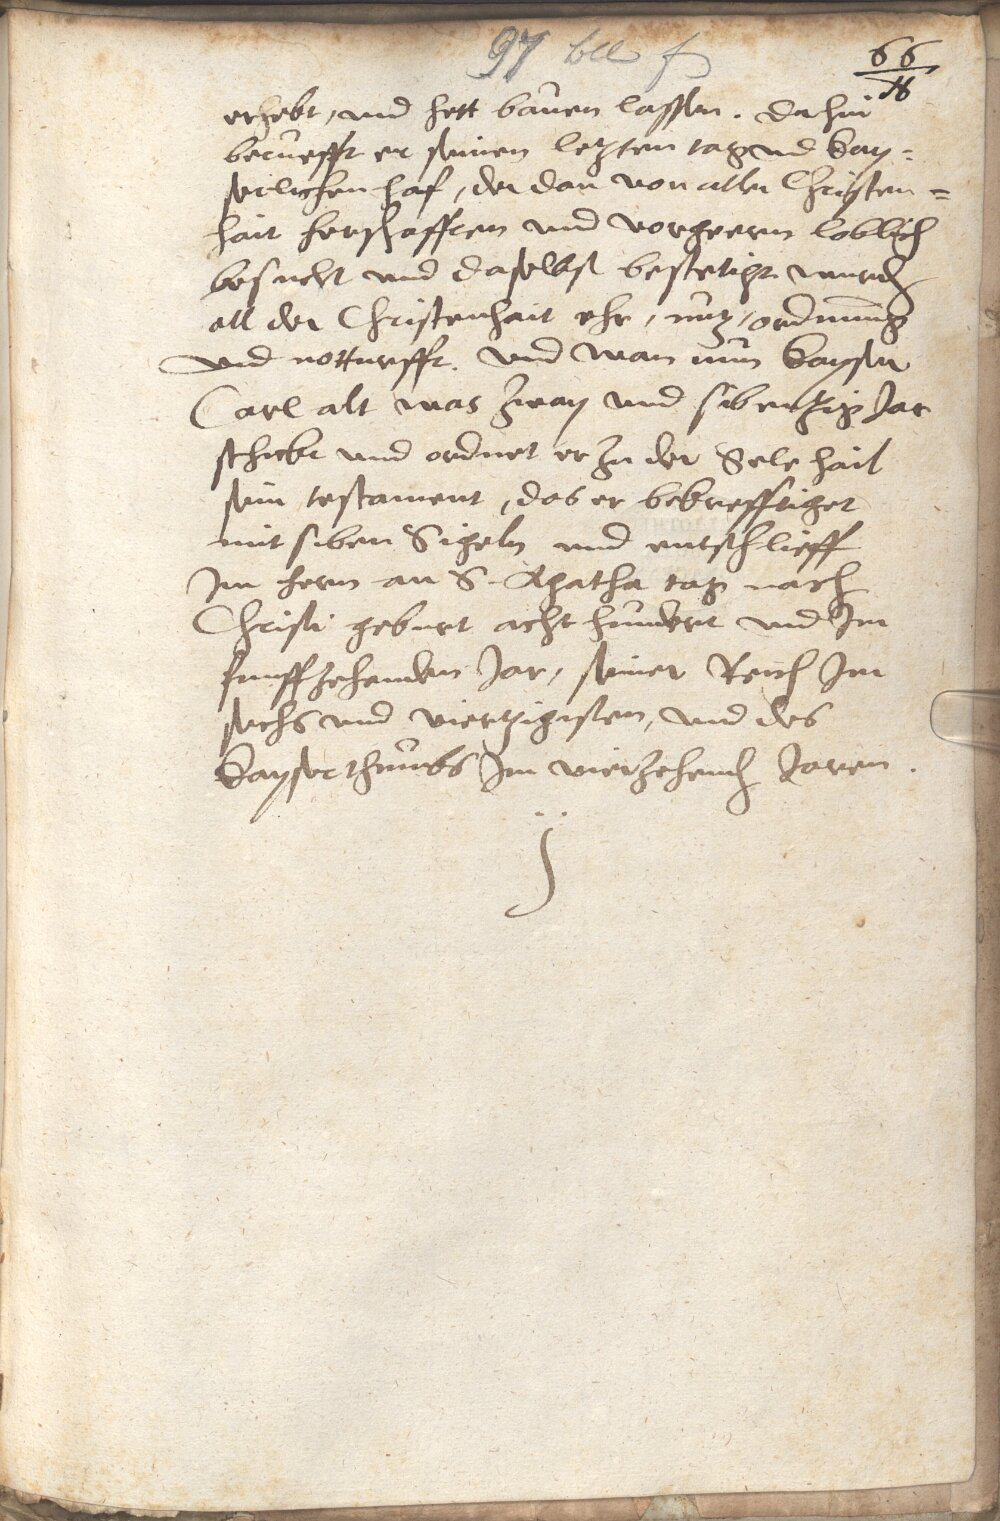 97 bll f
66
erhebt, und hett bauen lassen. dahin
beruefft er seinen letzten tag und Kay-
serlichen hof, der dan von aller Christen=
hait herschafften und vorgeern loblich
besucht und daselbst bestetigt wurd
all der Christenhait ehr, nutz, ordnung
und notturfft. und wan nun Kayser
Carl alt was zway und sibentzig Jar
schickt und ordnet er zu der Sele hail
sein testament, das er bekrefftiget
mit siben Sigeln und entschlieff
Im hern an S. Agatha tag nach
Christi geburt acht hundert und Im
funffzehenden Jar, seiner Reich Im
sechs und viertzigisten, und des
Kayserthumbs Im vierzehend Jaren.